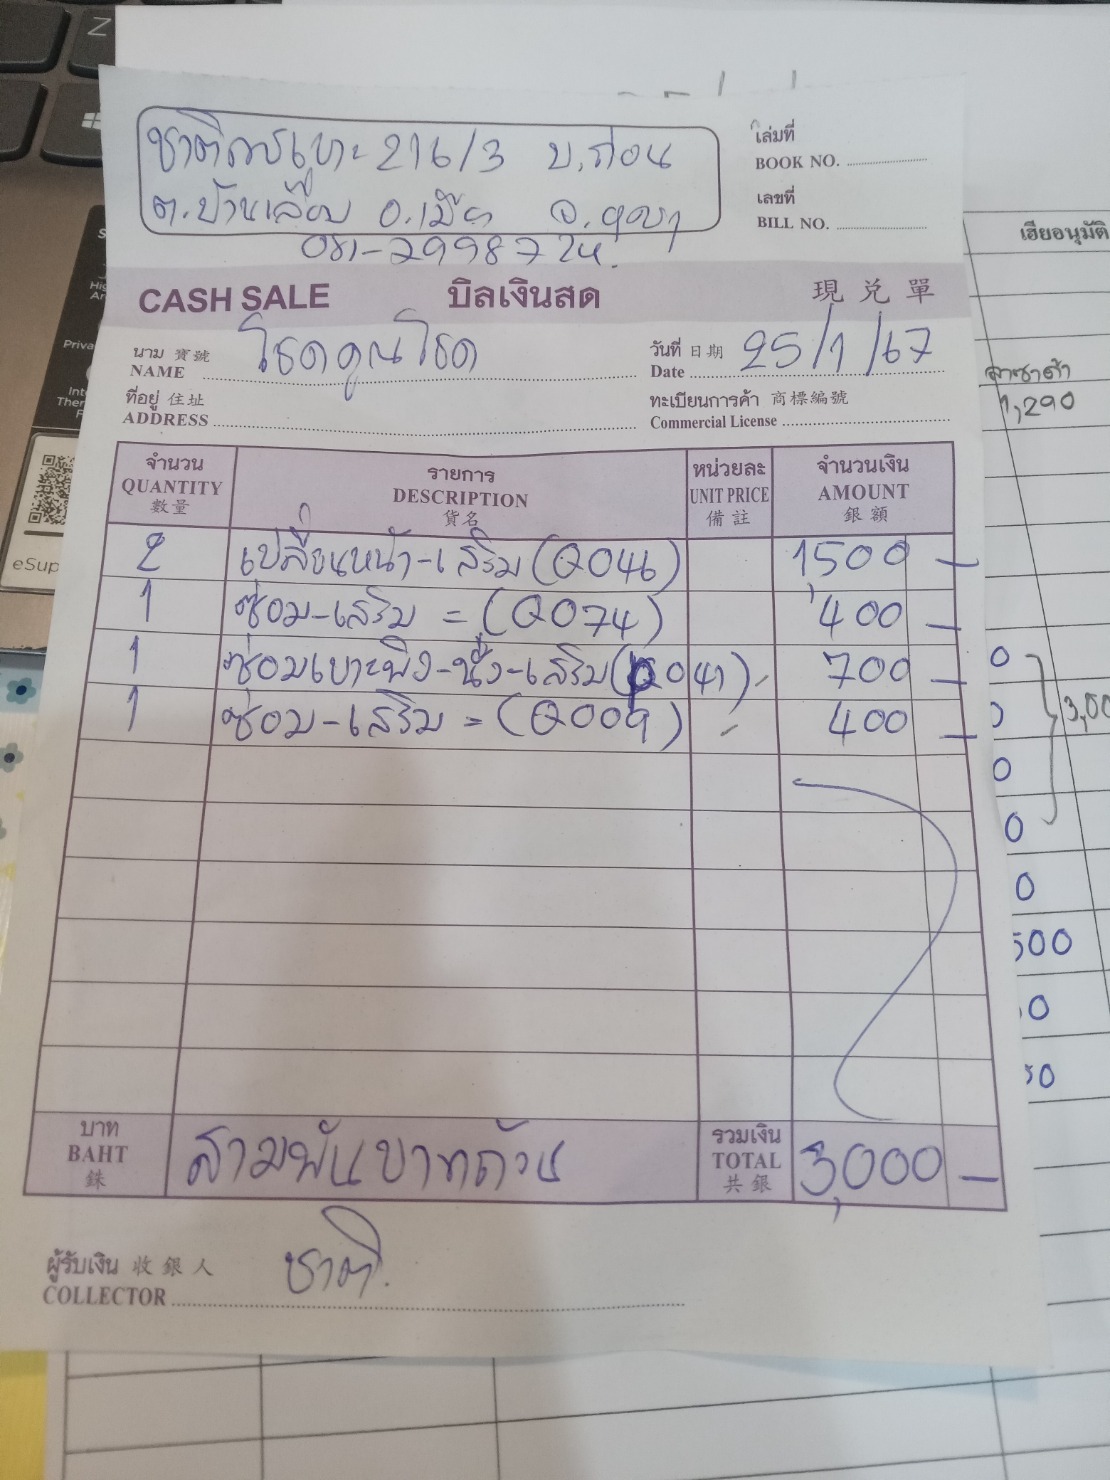 Z
ชาติการเบาะ 216/3 บ.ก่อน
ต.บ้านเลื่อม อ.เมือง จ.อุดรฯ
เล่มที่
BOOK NO.
เลขที่
BILL NO.
CASH SALE บิลเงินสด 現兌單
นาม 寶號
NAME โชคคูณโชค
วันที่ 日期
Date 25/1/67
ที่อยู่ 住址
ADDRESS
ทะเบียนการค้า 商標編號
Commercial License
จำนวน รายการ หน่วยละ จำนวนเงิน
QUANTITY DESCRIPTION UNIT PRICE AMOUNT
數量 貨名 備註 銀額
2 เปลี่ยนหน้า-เสริม (Q046) 1,500 —
1 ซ่อม-เสริม = (Q074) 400 —
1 ซ่อมเบาะพิง-นั่ง-เสริม (Q041) 700 —
1 ซ่อม-เสริม = (Q009) 400 —
บาท
BAHT
銖
สามพันบาทถ้วน
รวมเงิน
TOTAL
共銀
3,000 —
ผู้รับเงิน 收銀人
COLLECTOR ชาติ
เฮียอนุมัติ
ลาซาด้า
1,290